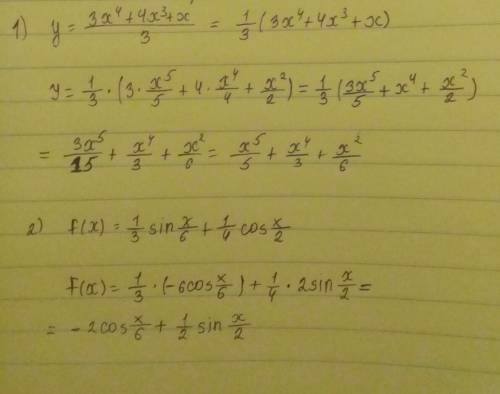 1) y = (3x⁴+4x³+x)/3 = 1/3 (3x⁴+4x³+x)
y = 1/3 · (3 · x⁵/5 + 4 · x⁴/4 + x²/2) = 1/3 (3x⁵/5 + x⁴ + x²/2)
= 3x⁵/15 + x⁴/3 + x²/6 = x⁵/5 + x⁴/3 + x²/6
2) f(x) = 1/3 sin x/6 + 1/4 cos x/2
F(x) = 1/3 · (-6cos x/6) + 1/4 · 2sin x/2 =
= -2cos x/6 + 1/2 sin x/2